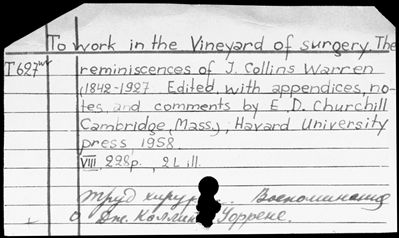 To work in the Vineyard of surgery. The
T627wr reminiscences of J. Collins Warren
(1842-1927. Edited, with appendices, no-
tes, and comments by E. D. Churchill
Cambridge, (Mass.), Havard University
press, 1958.
VIII, 228p., 2 L ill.
Труд хирур... Воспоминания
о Дж. Коллин Уоррене.